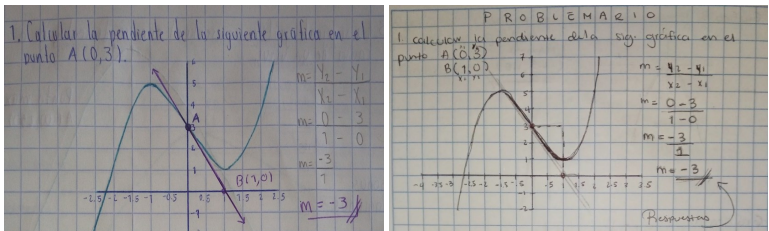 1. Calcular la pendiente de la siguiente gráfica en el
punto A(0,3).
m= Y₂ - Y₁
X₂ - X₁
m= 0 - 3
1 - 0
m= -3
1
m = -3
A
B(1,0)
-2.5 -2 -1.5 -1 -0.5 1 2 2.5
PROBLEMARIO
1. calcular la pendiente de la sig. gráfica en el
punto A(0,3)
B(1,0)
m= y₂ - y₁
x₂ - x₁
m= 0-3
1-0
m= -3
1
m= -3
Respuestas